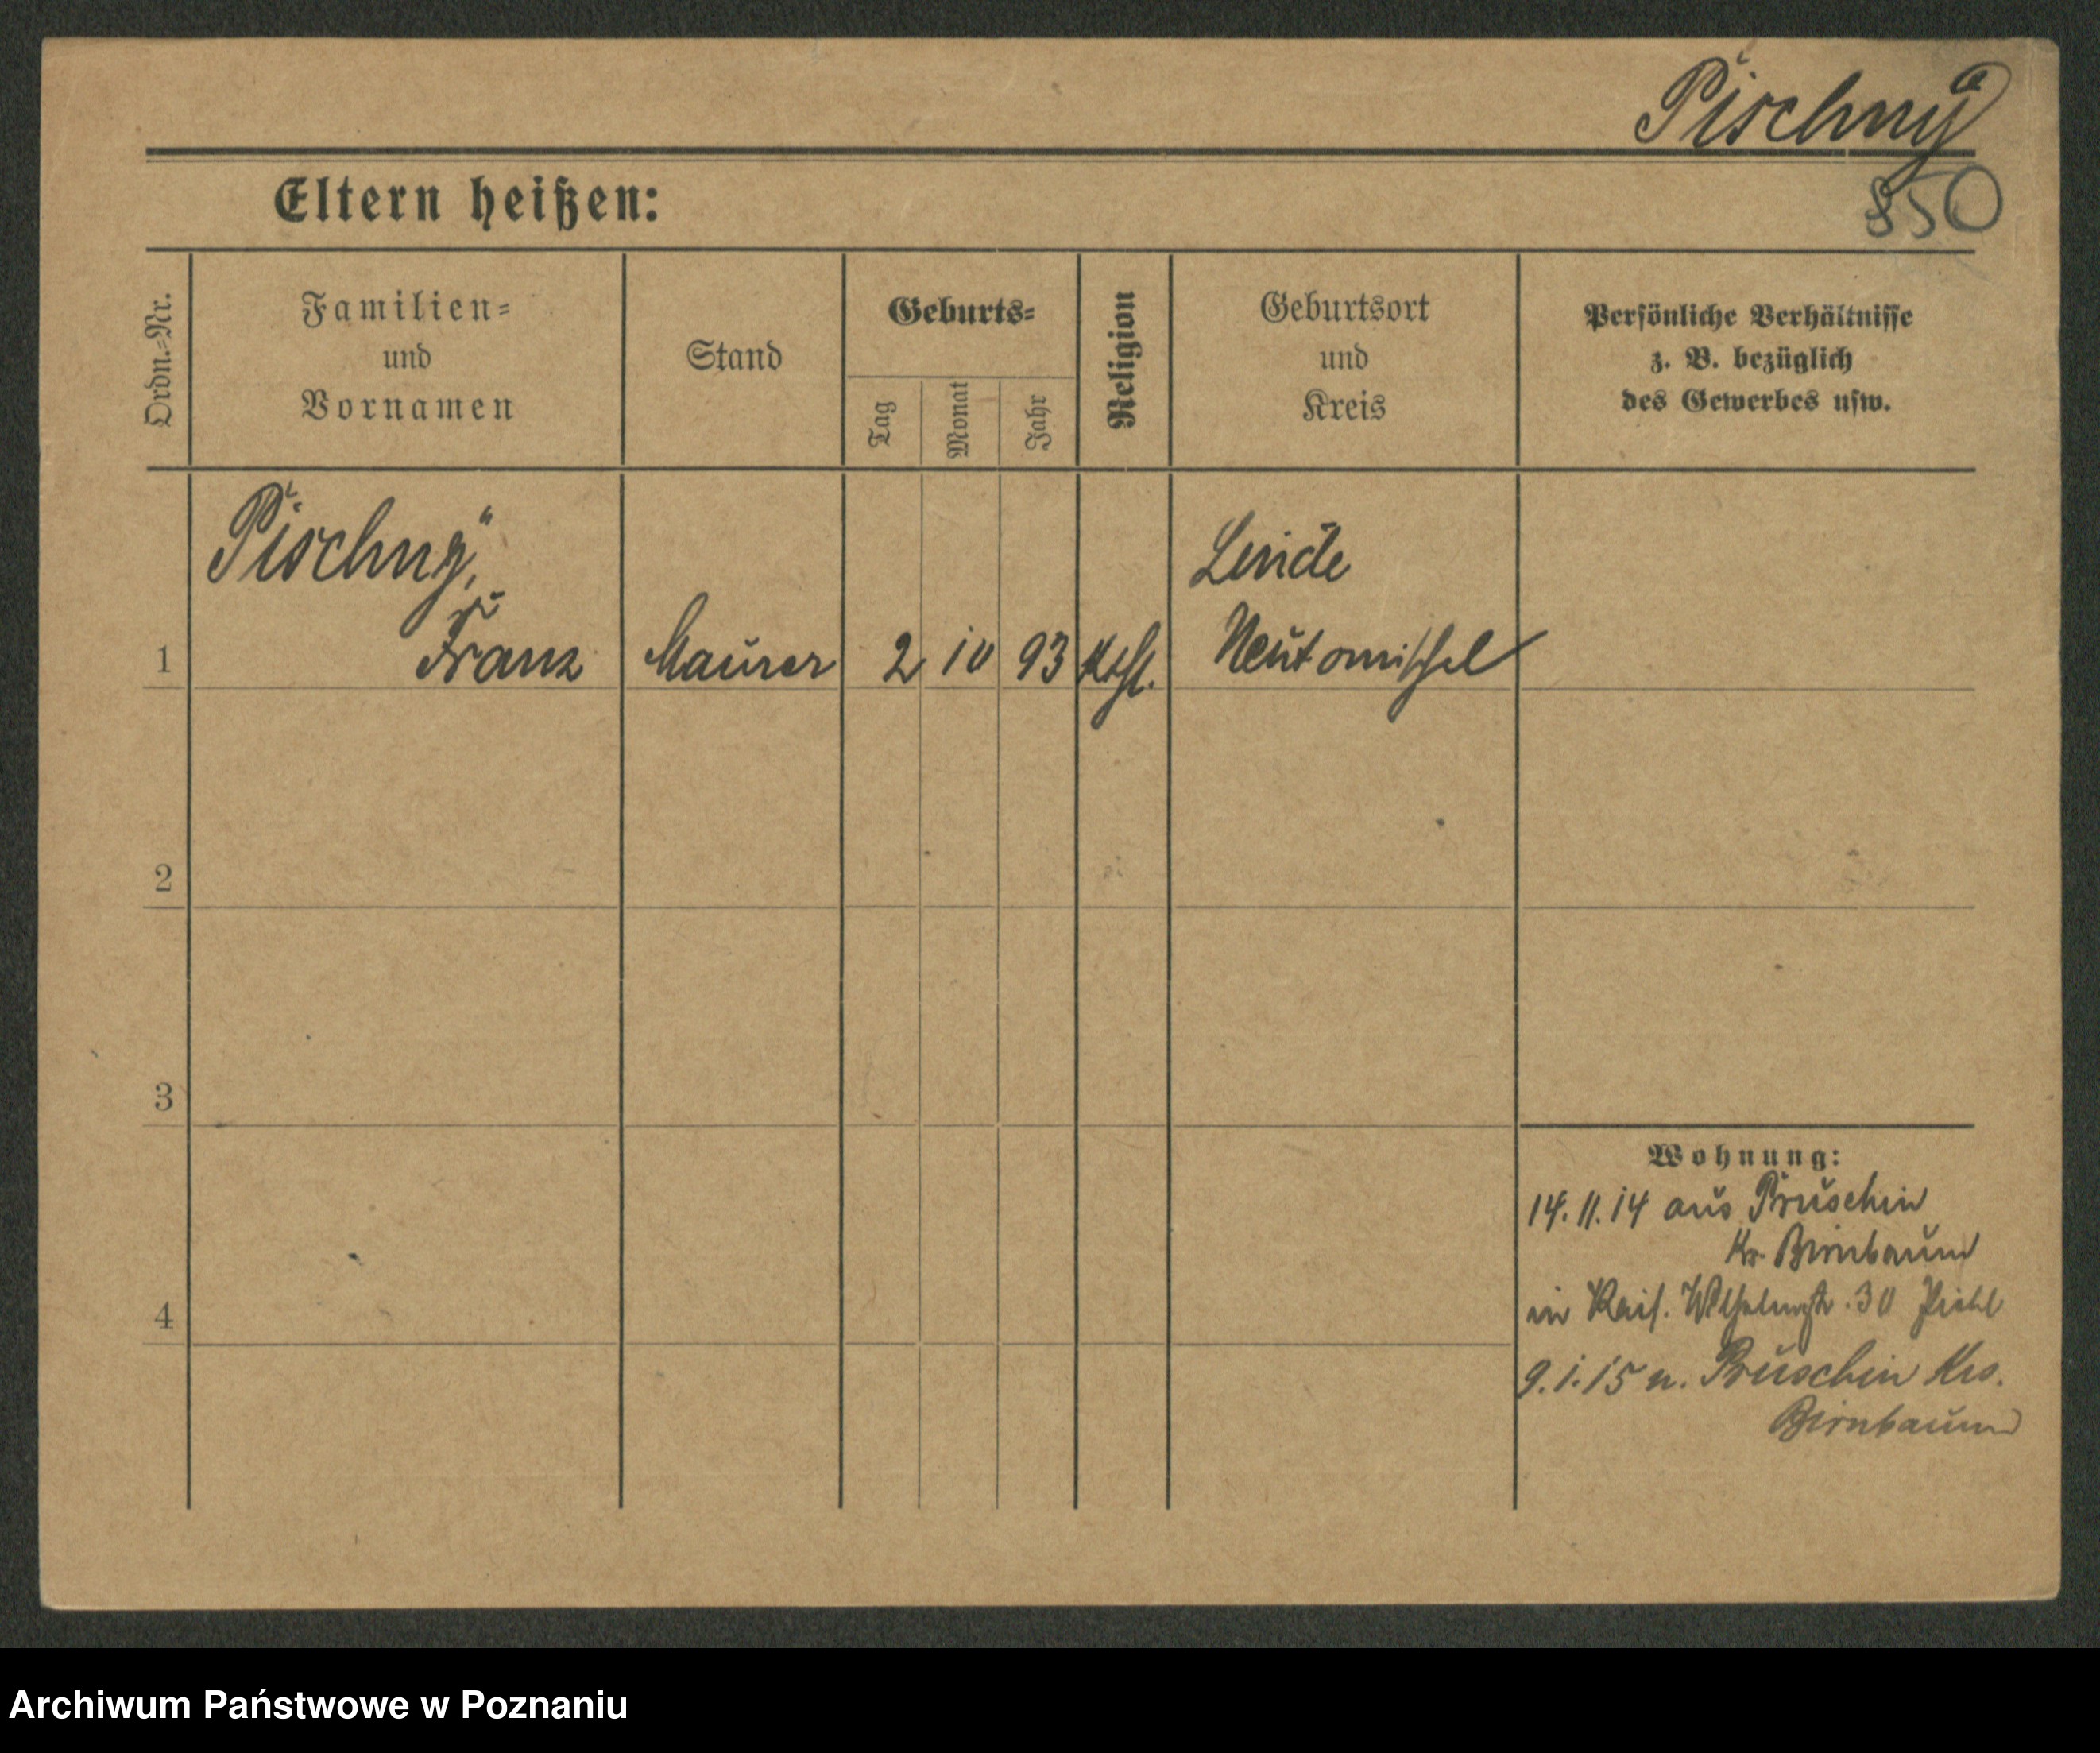 Pischny
850
Eltern heißen:
Ordn.=Nr.
Familien=
und
Vornamen
Stand
Geburts=
Tag
Monat
Jahr
Religion
Geburtsort
und
Kreis
Persönliche Verhältnisse
z. B. bezüglich
des Gewerbes usw.
Pischny,
Linde
1 Franz Maurer 2 10 93 kth. Neutomischel
2
3
Wohnung:
14.11.14 aus Pruschin
Kr. Birnbaum
4
in Kais. Wilhelmstr. 30
9.1.15 n. Pruschin Krs.
Birnbaum
Archiwum Państwowe w Poznaniu